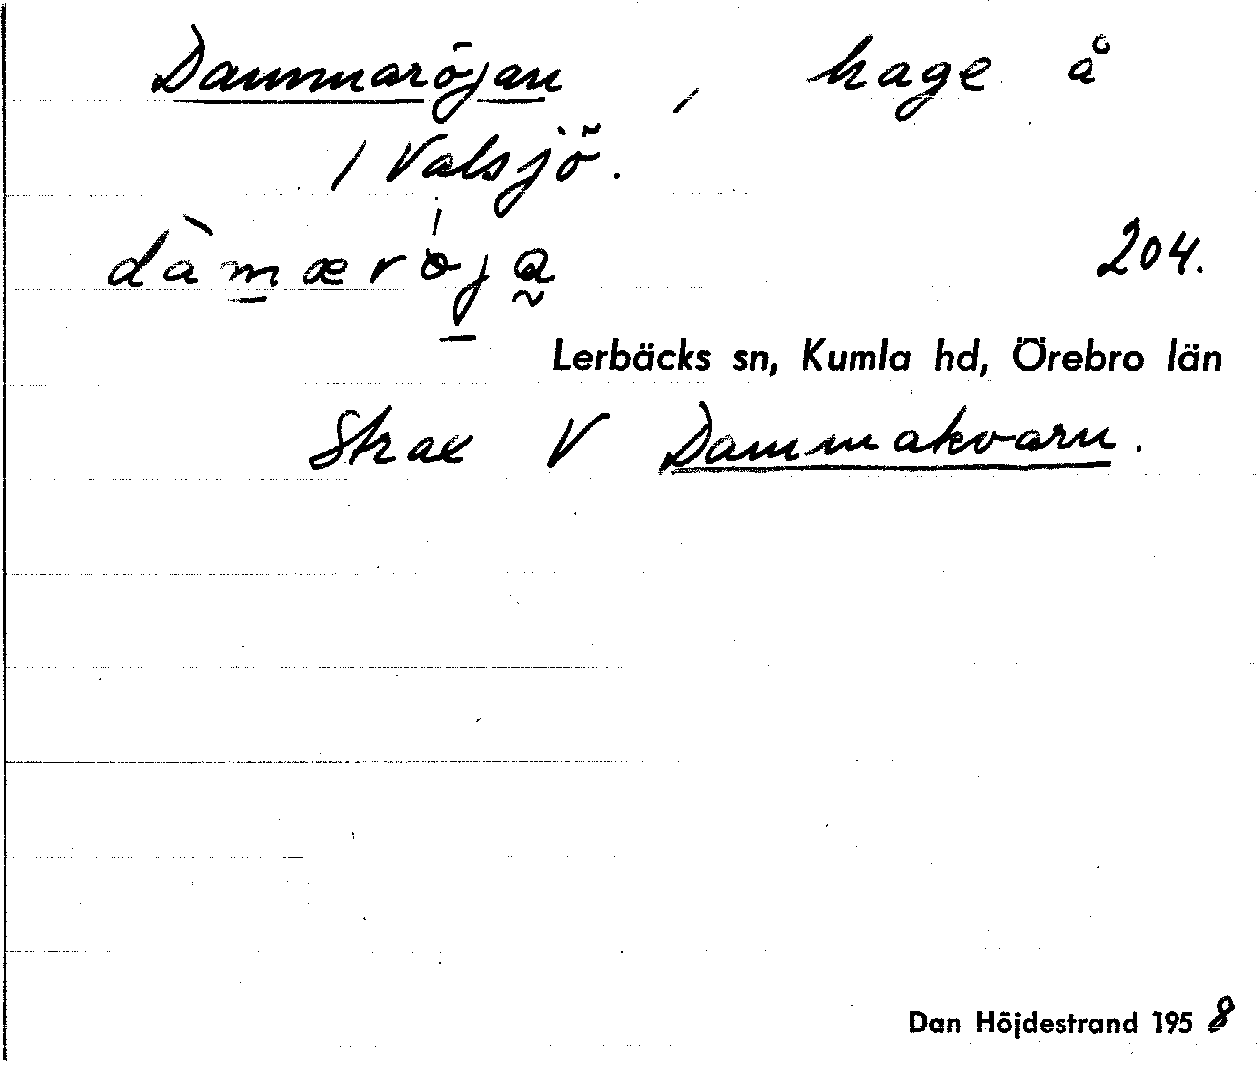 Dammaröjan, hage å
1 Valsjö.
dàmæröja
204.
Lerbäcks sn, Kumla hd, Örebro län
Strax V Dammakvarn.
Dan Höjdestrand 1958